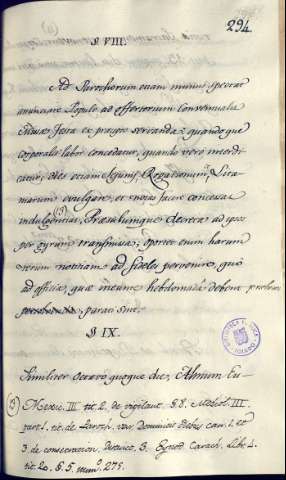 294.
§ VIII.
Ad Parochorum etiam munus spectat
anunciare Populo, ad offertorium conventualis
Missæ Festa ex præcepto servanda: quando que
corporalis labor concedatur, quando vero interdi
catur; dies etiam Jejunij, Rogationum, Lita-
niarum evulgare, et notas facere concessas
indulgentias, Præsulumque decreta ad ipsos
per gyrum transmissa; oportet enim harum
rerum notitiam ad fideles pervenire, quo
ad officia, quæ intimæ hebdomada debent
parati sint.
§ IX.
Similiter octavo quoque die, Almum Eu-
Mexic. III tit. 2. de vigilant. § 8. Mediol. III
part. 1. tit. de Paroch.
3. de consecration. distinct. 3. Lib. 4.
tit. 20. § 5. num. 275.